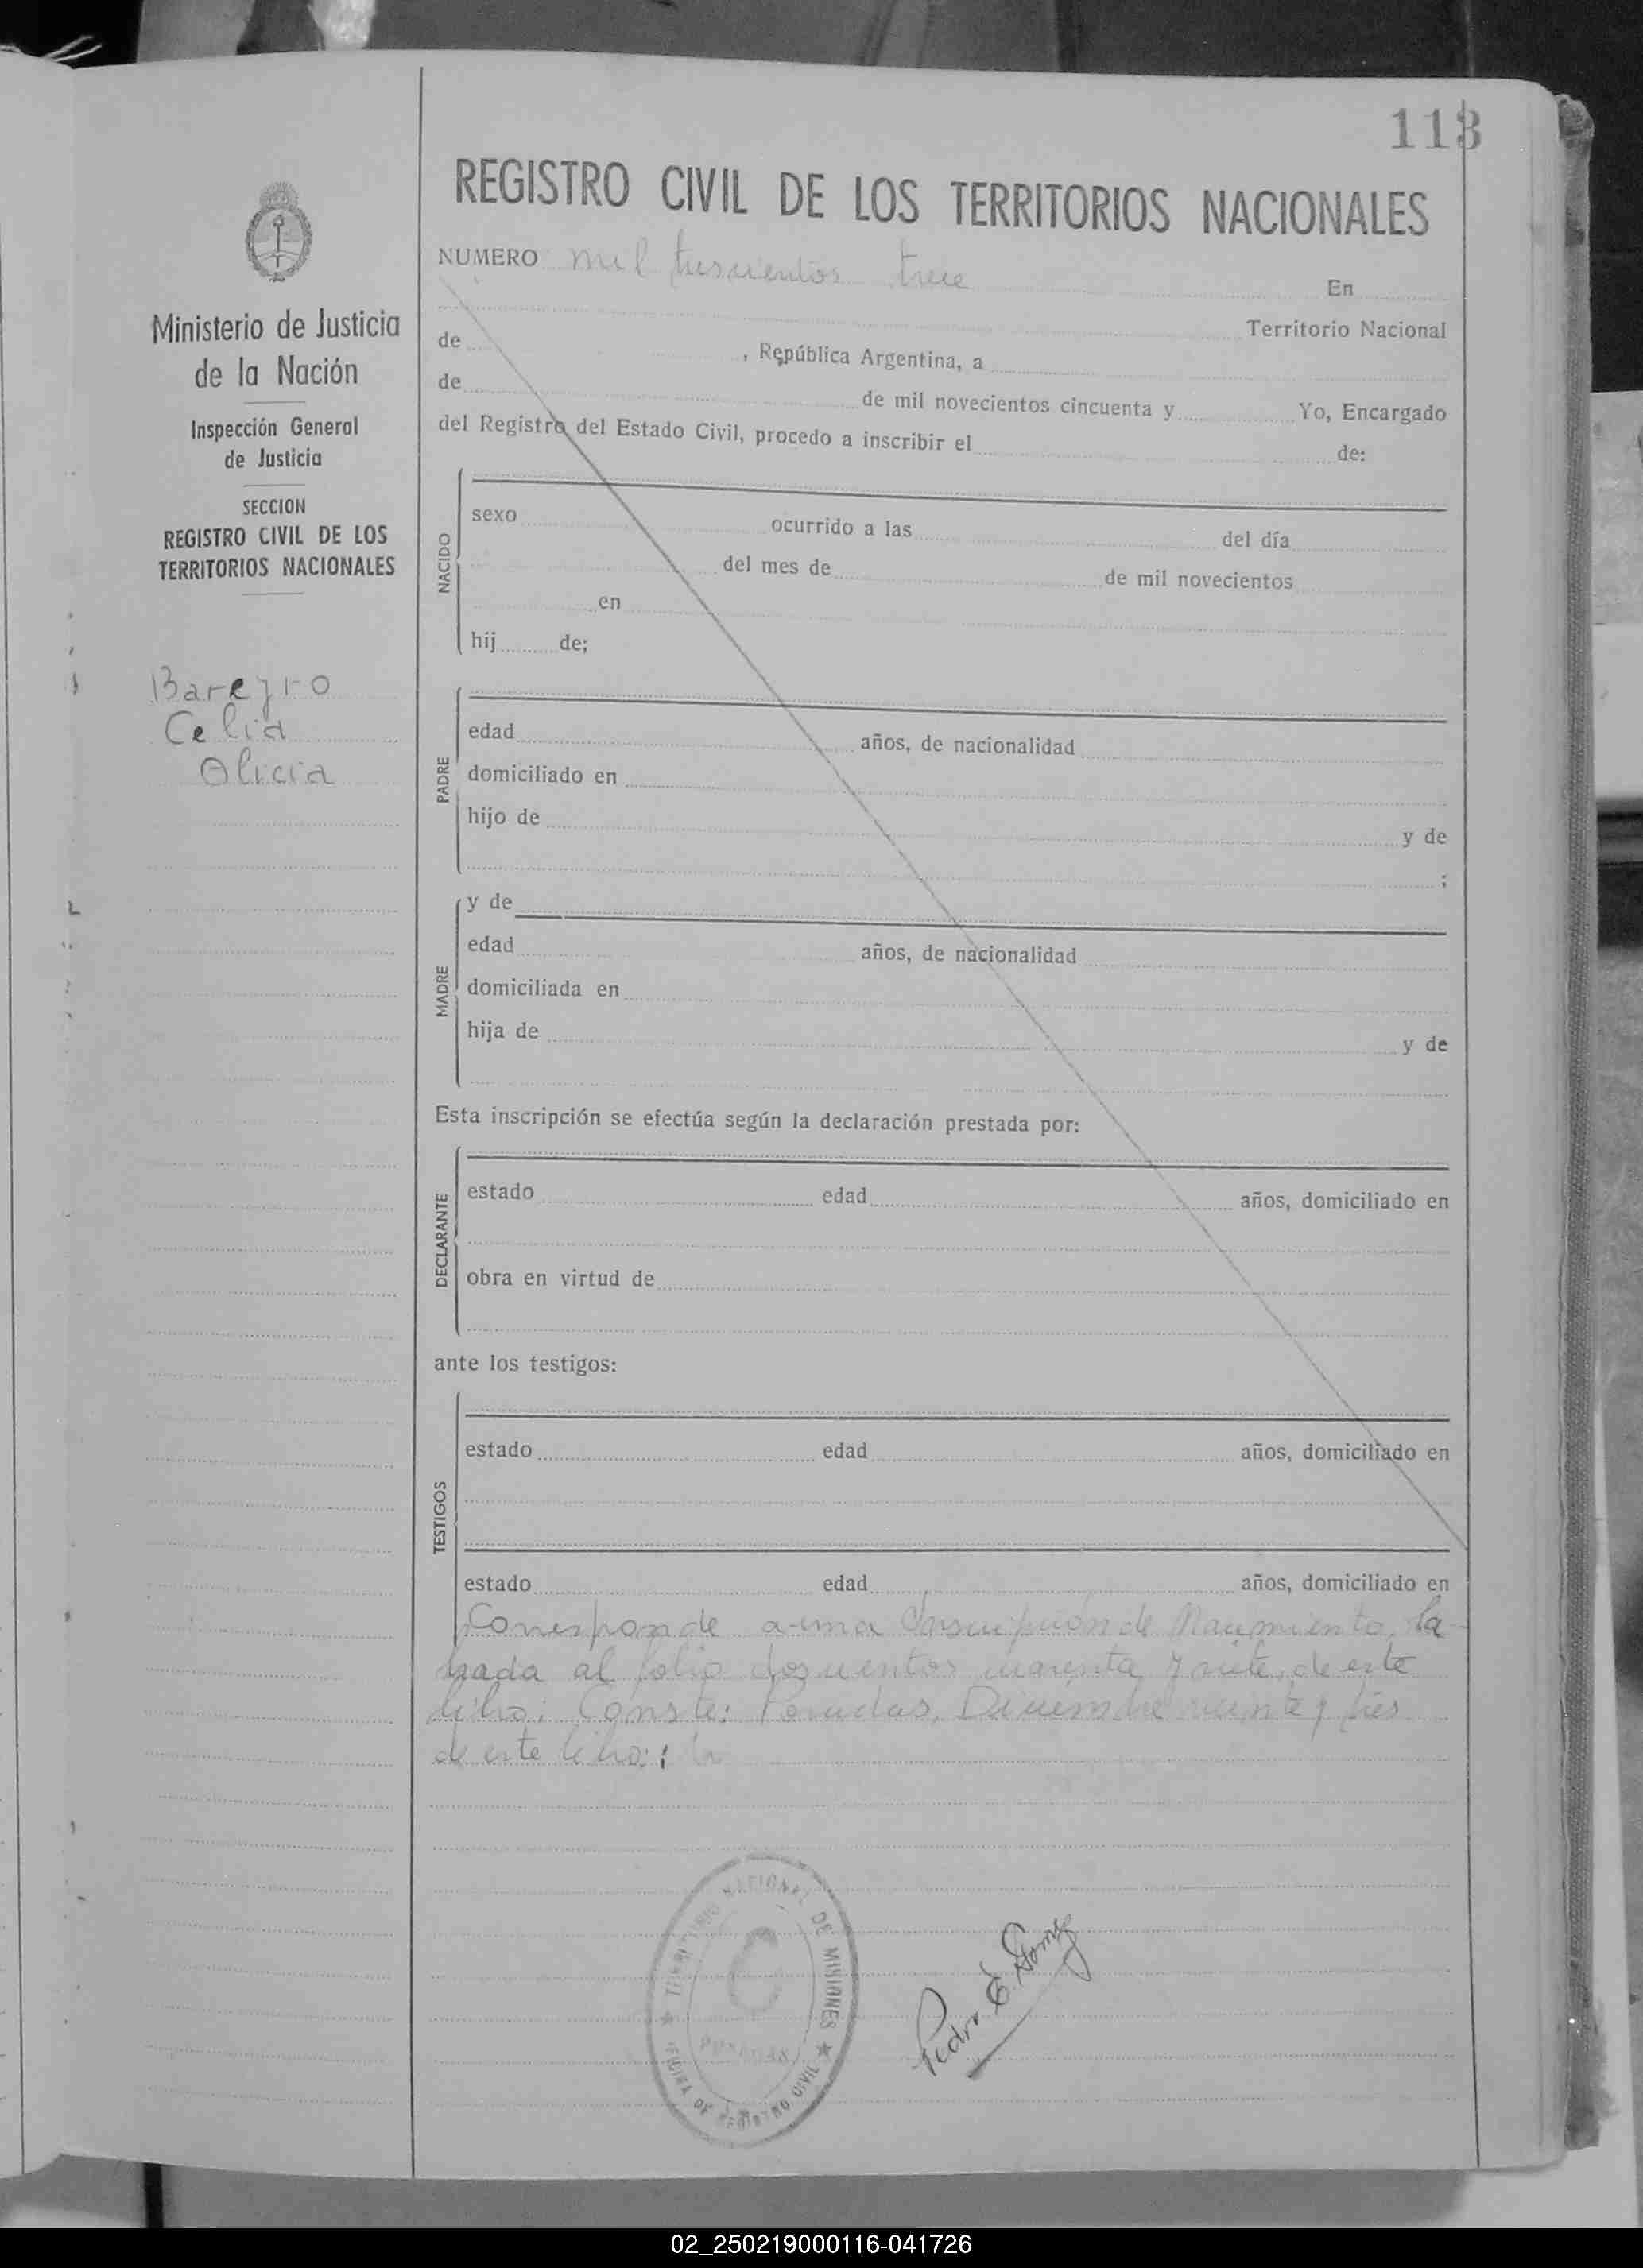 113
REGISTRO CIVIL DE LOS TERRITORIOS NACIONALES
NUMERO mil trescientos trece
En
Territorio Nacional
de , República Argentina, a
de de mil novecientos cincuenta y Yo, Encargado
del Registro del Estado Civil, procedo a inscribir el de:
Ministerio de Justicia
de la Nación
Inspección General
de Justicia
SECCION
REGISTRO CIVIL DE LOS
TERRITORIOS NACIONALES
Bareyro
Celia
Alicia
NACIDO
sexo ocurrido a las del día
del mes de de mil novecientos
en
hij de;
PADRE
edad años, de nacionalidad
domiciliado en
hijo de y de
;
MADRE
y de
edad años, de nacionalidad
domiciliada en
hija de y de
Esta inscripción se efectúa según la declaración prestada por:
DECLARANTE
estado edad años, domiciliado en
obra en virtud de
ante los testigos:
TESTIGOS
estado edad años, domiciliado en
estado edad años, domiciliado en
Corresponde a una Inscripción de Nacimiento, la-
brada al folio doscientos cuarenta y siete, de este
libro: Conste: Posadas, Diciembre veinte y tres
de este libro:
TERRITORIO NACIONAL DE MISIONES
POSADAS
OFICINA DE REGISTRO CIVIL
Pedro E. Gomez
02_250219000116-041726